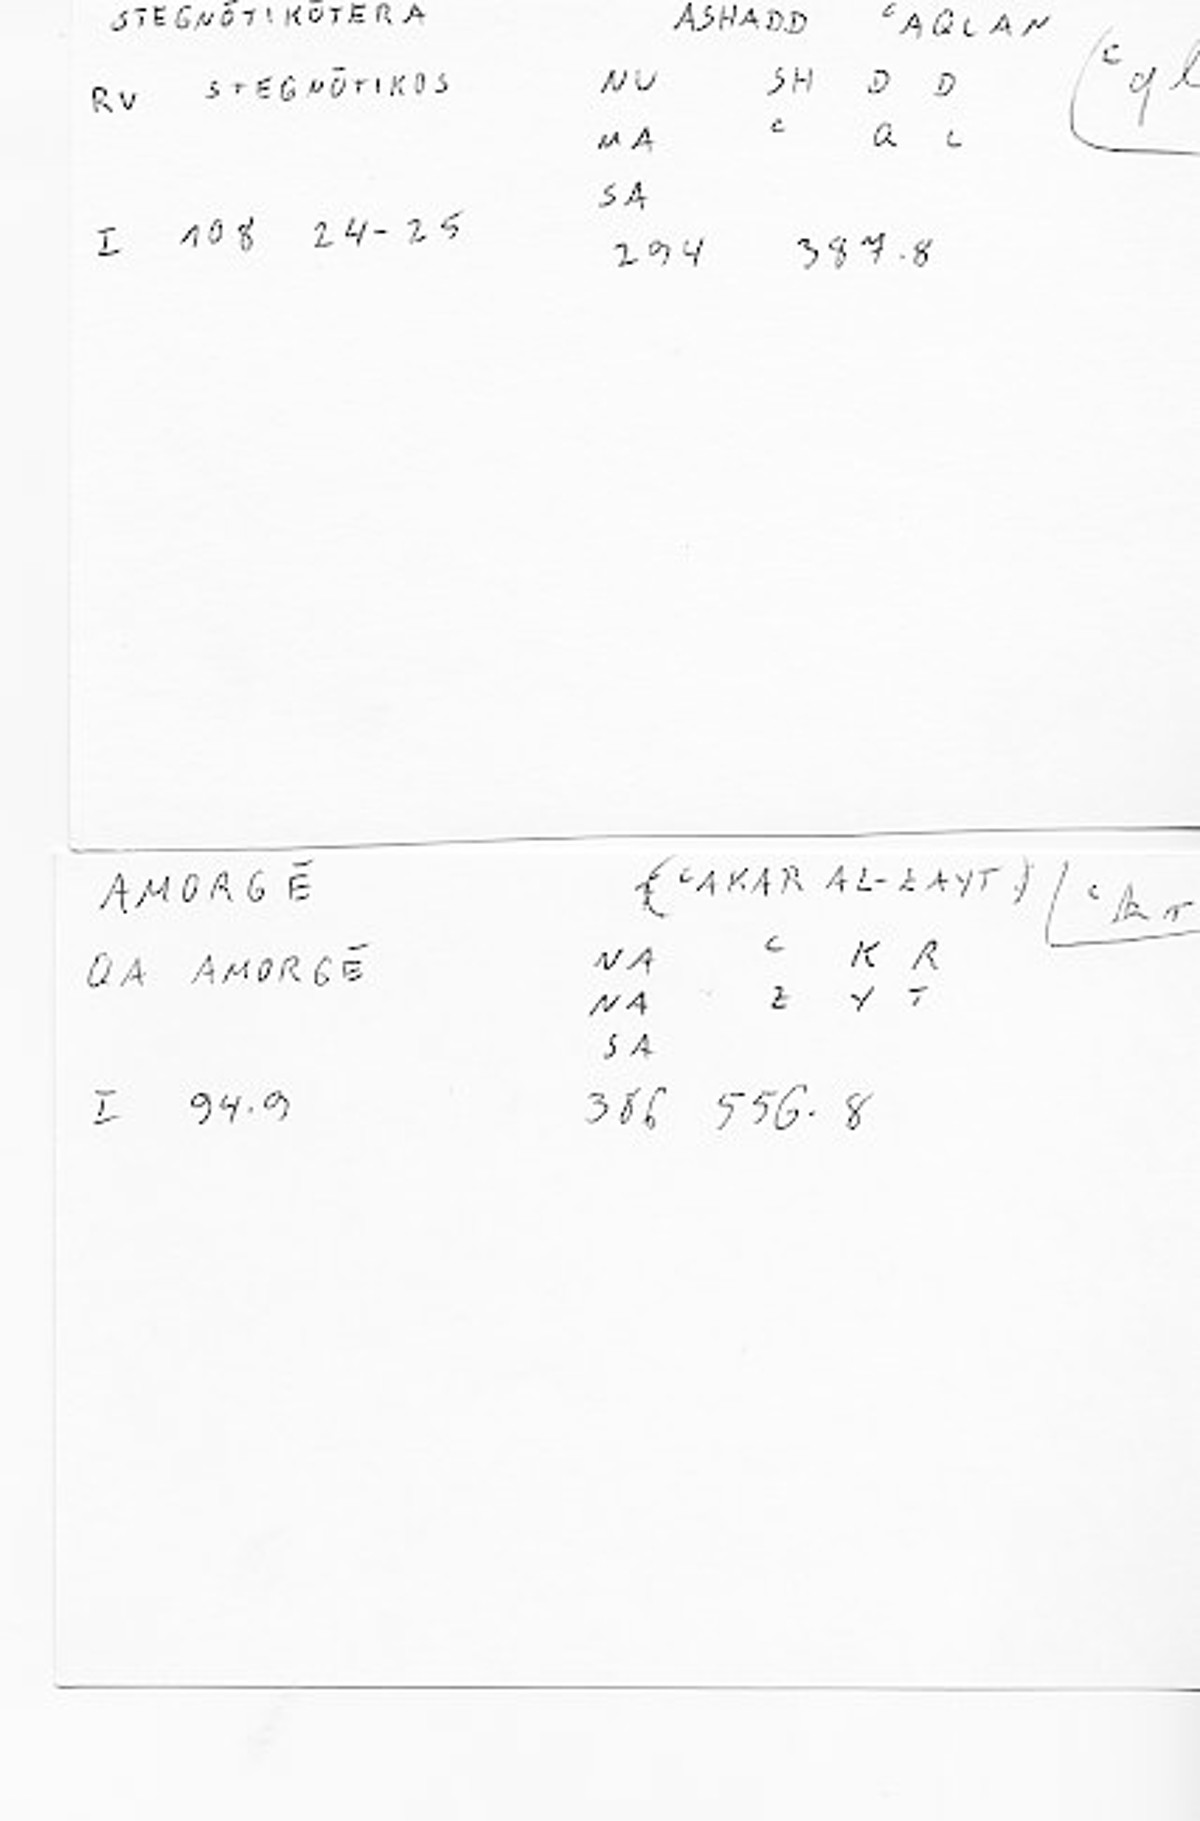 STEGNŌTIKŌTERA ASHADD ʿAQLAN
RV STEGNŌTIKOS NU SH D D
MA ʿ Q L
SA
I 108 24-25 294 387.8
AMORGĒ (ʿAKAR AL-ZAYT) ʿkr
QA AMORGĒ NA ʿ K R
NA Z Y T
SA
I 94.9 386 556.8